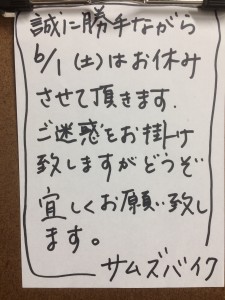 誠に勝手ながら
6/1(土)はお休み
させて頂きます.
ご迷惑をお掛け
致しますがどうぞ
宜しくお願い致し
ます。
サムズバイク